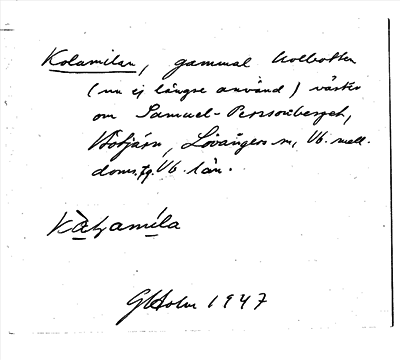 Kolamilan, gammal kolbotten
(nu ej längre använd) väster
om Samuel-Perssonberget,
Lövångers sn, Vb. mell.
doms. fg. Vb. län.
GHolm 1947